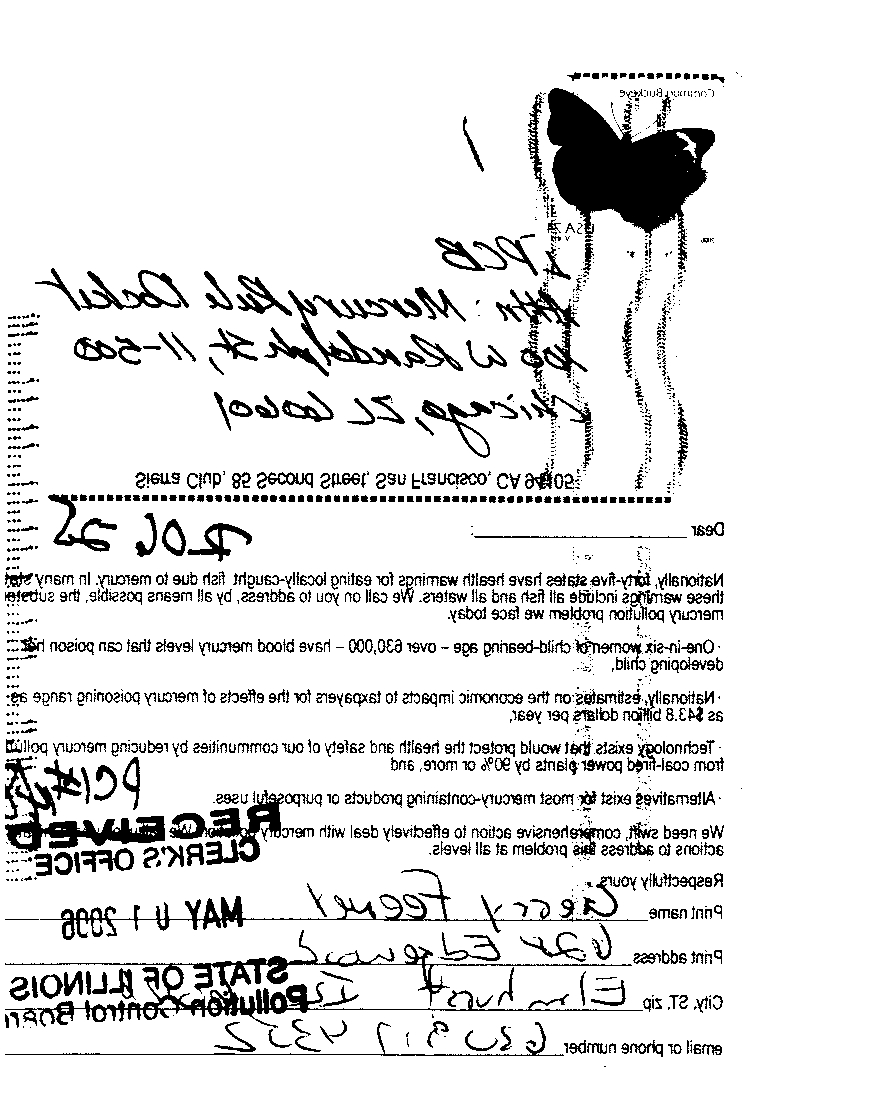 Common Buckeye
USA 24
PCB
Attn: Mercury Rule Docket
100 W Randolph St, 11-500
Chicago, IL 60601
Sierra Club, 85 Second Street, San Francisco, CA 94105
R06-25
Dear :
Nationally, forty-five states have health warnings for eating locally-caught fish due to mercury. In many
these warnings include all fish and all waters. We call on you to address, by all means possible, the
mercury pollution problem we face today.
· One-in-six women of child-bearing age – over 630,000 – have blood mercury levels that can poison her
developing child,
· Nationally, estimates on the economic impacts to taxpayers for the effects of mercury poisoning range as
as $43.8 billion dollars per year,
· Technology exists that would protect the health and safety of our communities by reducing mercury
from coal-fired power plants by 90% or more, and
· Alternatives exist for most mercury-containing products or purposeful uses.
We need swift, comprehensive action to effectively deal with mercury
actions to address this problem at all levels.
RECEIVED
CLERK'S OFFICE
MAY 01 2006
STATE OF ILLINOIS
Pollution Control Board
Respectfully yours,
Print name Gerry Feeney
Print address Edgewood
City, ST, zip Elmhurst IL
email or phone number 630 917 4332